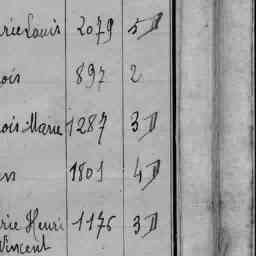 rie Louis 2079 5 D
ois 897 2
ois Marie 1287 3 D
1801 4 D
rie Henri 1176 3 D
Vincent